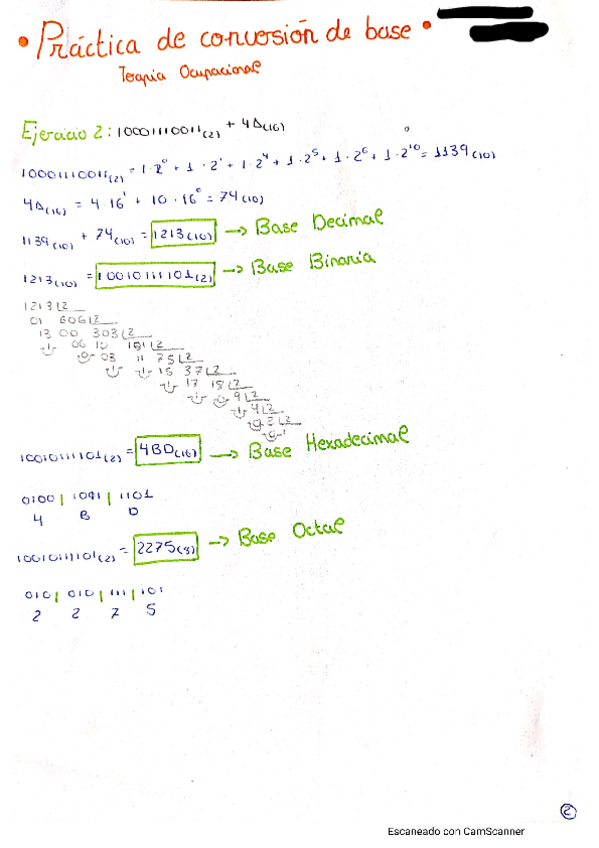 • Práctica de conversión de base •
Terapia Ocupacional
Ejercicio 2: 10001110011(2) + 4A(16)
10001110011(2) = 1·2⁰ + 1·2¹ + 1·2⁴ + 1·2⁵ + 1·2⁶ + 1·2¹⁰ = 1139(10)
4A(16) = 4·16¹ + 10·16⁰ = 74(10)
1139(10) + 74(10) = 1213(10) → Base Decimal
1213(10) = 10010111101(2) → Base Binaria
1213 2
01 606 2
13 00 303 2
1 06 10 151 2
0 03 11 75 2
1 1 15 37 2
1 17 18 2
1 0 9 2
1 4 2
0 2 2
0 1
10010111101(2) = 4BD(16) → Base Hexadecimal
0100 | 1011 | 1101
4 B D
10010111101(2) = 2275(8) → Base Octal
010 | 010 | 111 | 101
2 2 7 5
2
Escaneado con CamScanner